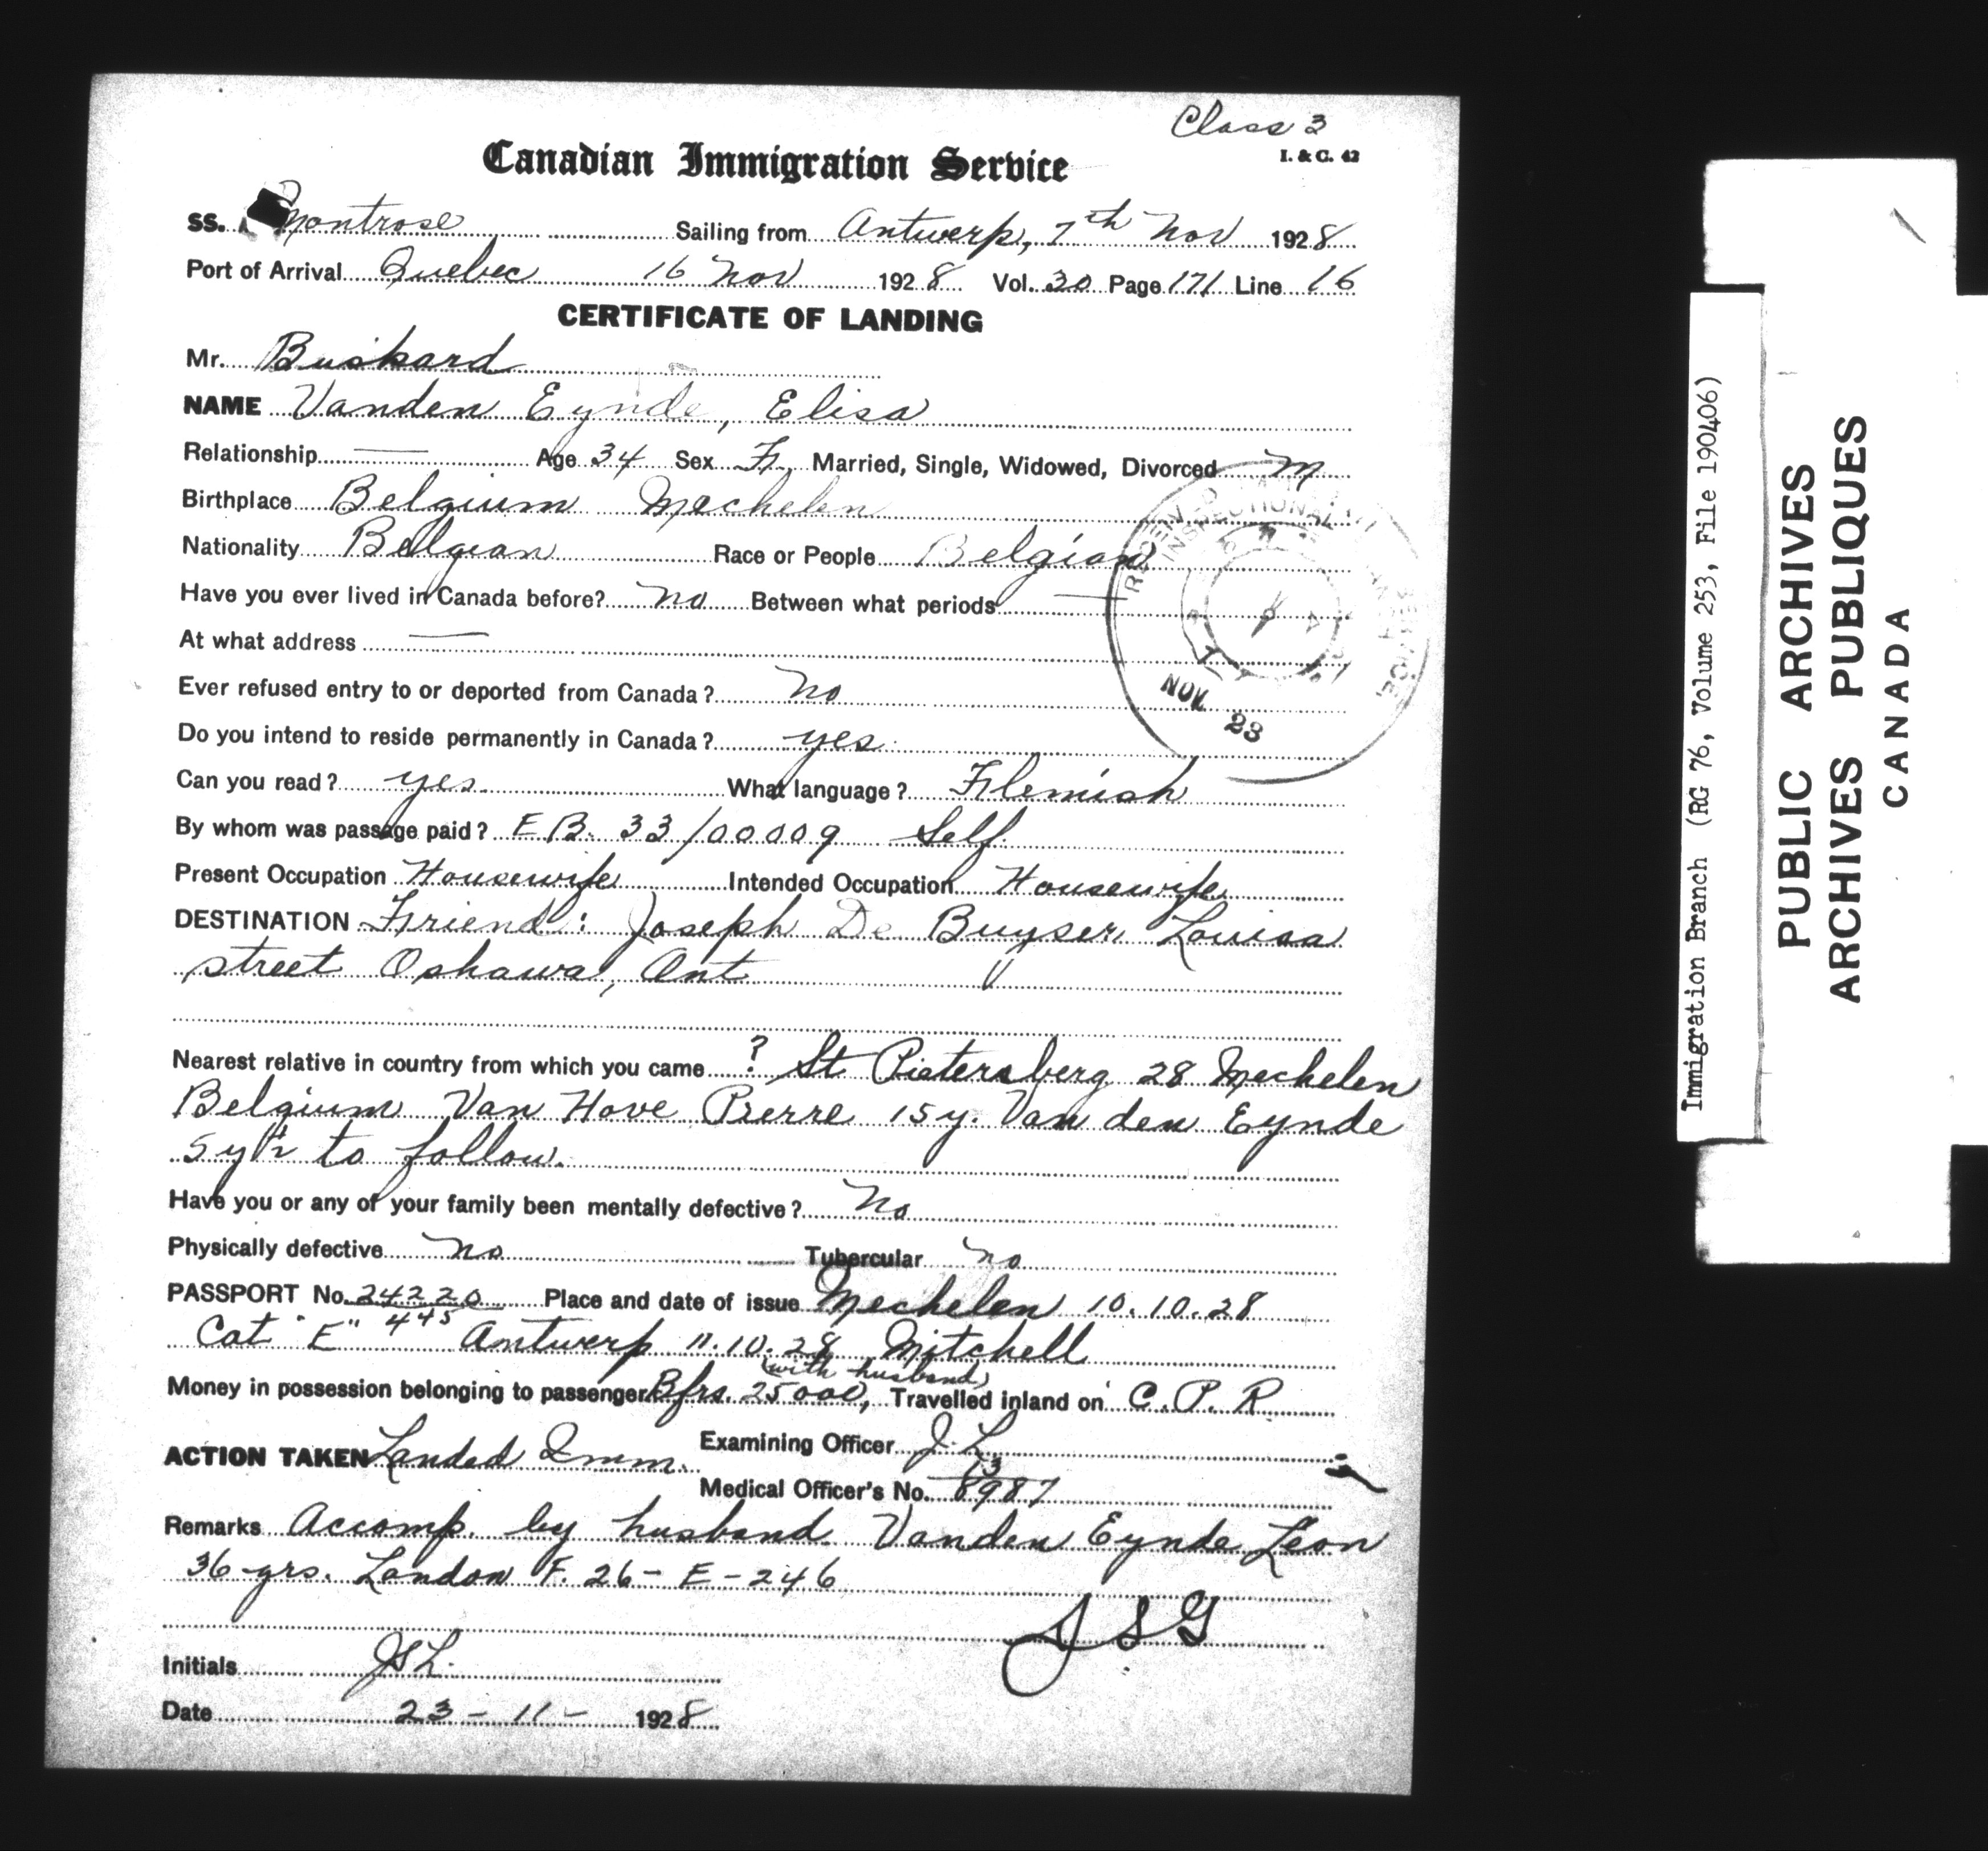 Class 3
Canadian Immigration Service
I. & C. 42
SS. Montrose Sailing from Antwerp, 7th Nov 1928
Port of Arrival Quebec 16 Nov 1928 Vol. 30 Page 171 Line 16
CERTIFICATE OF LANDING
Mr. Buskard
NAME Vanden Eynde, Elisa
Relationship — Age 34 Sex F. Married, Single, Widowed, Divorced M
Birthplace Belgium Mechelen
Nationality Belgian Race or People Belgian
Have you ever lived in Canada before? no Between what periods —
At what address —
Ever refused entry to or deported from Canada? no
Do you intend to reside permanently in Canada? yes
NOV 23
Can you read? yes What language? Flemish
By whom was passage paid? E B. 33/00009 Self
Present Occupation Housewife Intended Occupation Housewife
DESTINATION Friend: Joseph De Buyser, Louisa
street Oshawa, Ont
Nearest relative in country from which you came ? St Pietersberg 28 Mechelen
Belgium Van Hove Pierre 15y. Van den Eynde
5 y to follow.
Have you or any of your family been mentally defective? No
Physically defective no Tubercular no
PASSPORT No. 24220 Place and date of issue Mechelen 10.10.28
Cat "E" 445 Antwerp 11.10.28 Mitchell
(with husband)
Money in possession belonging to passenger Bfrs. 25000, Travelled inland on C. P. R
ACTION TAKEN Landed Imm. Examining Officer J. L.
Medical Officer's No. 13 8987
Remarks Accomp. by husband Vanden Eynde Leon
36 yrs. London F. 26 - E - 246
Initials JSL.
Date 23 - 11 - 1928
Immigration Branch (RG 76, Volume 253, File 190406)
PUBLIC ARCHIVES
ARCHIVES PUBLIQUES
CANADA